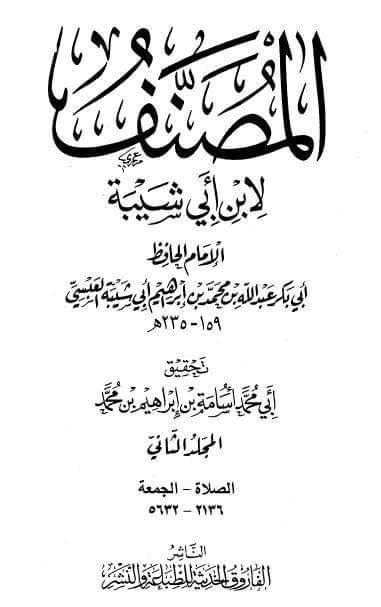 المُصَنَّف
لِابْنِ أَبِي شَيْبَة
الإمام الحافظ
أبي بكر عبد الله بن محمد بن إبراهيم أبي شيبة العبسي
١٥٩ - ٢٣٥ هـ
تحقيق
أبي محمد أسامة بن إبراهيم بن محمد
المجلد الثاني
الصلاة - الجمعة
٢١٣٦ - ٥٦٣٢
الناشر
الفاروق الحديثة للطباعة والنشر